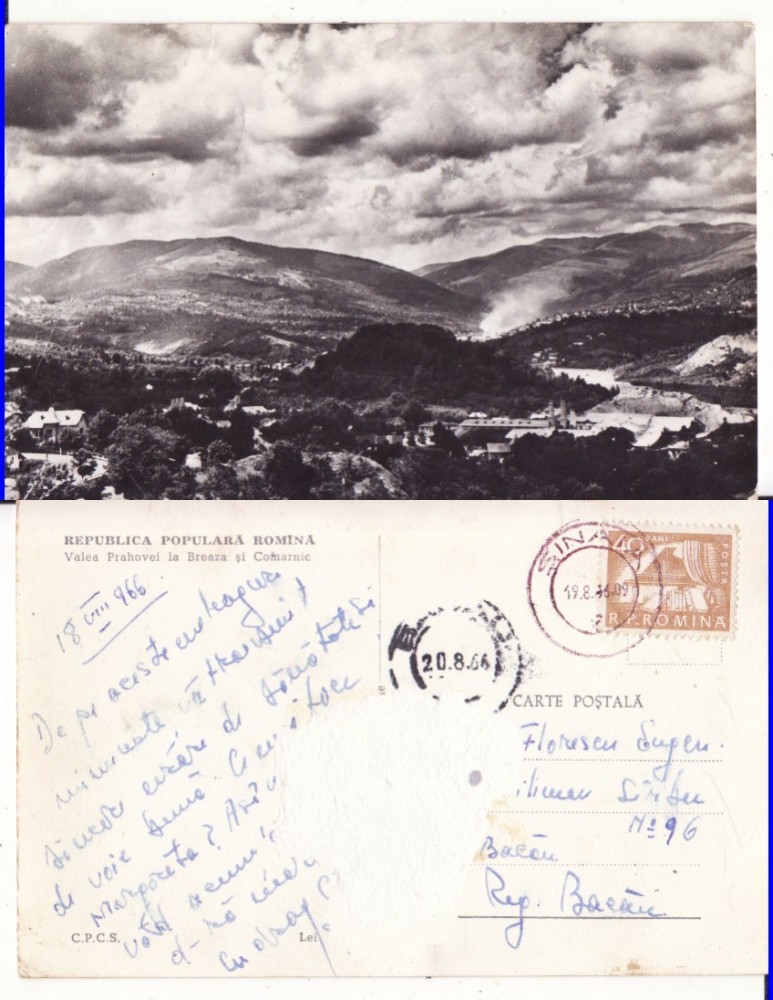 REPUBLICA POPULARĂ ROMÎNĂ
Valea Prahovei la Breaza și Comarnic
18 VIII 966
De pe aceste meleaguri
minunate, vă transmit
sincere urări de sănătate și
de voie bună. Ce mai face
Margareta?
cu drag
C.P.C.S.
Lei
SINAIA
19.8.66.09
20.8.66
40 BANI
POSTA
R.P.ROMINA
CARTE POȘTALĂ
Florescu Eugen.
Sîrbu
No 96
Bacău
Reg. Bacău